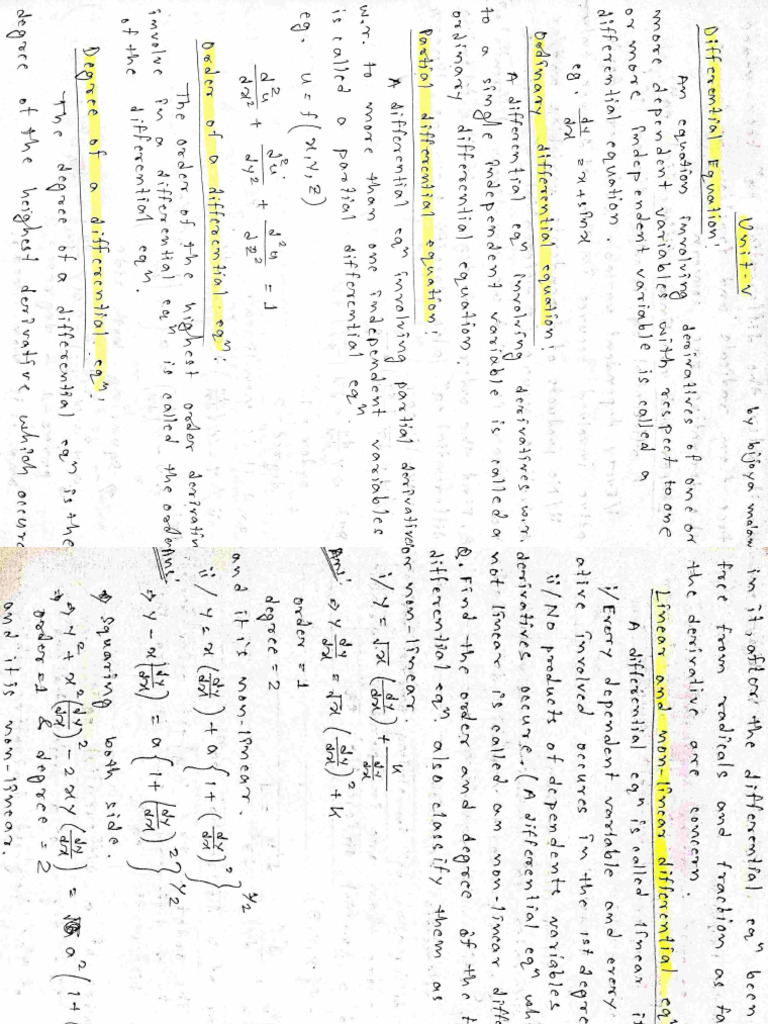 Unit-V
by bijoya madam
Differential Equation:
An equation involving derivatives of one or
more dependent variables with respect to one
or more independent variable is called a
differential equation.
eg. dy/dx = x + sinx
Ordinary differential equation:
A differential eqn involving derivatives w.r.
to a single independent variable is called a
ordinary differential equation.
Partial differential equation:
A differential eqn involving partial derivatives
w.r. to more than one independent variables
is called a partial differential eqn.
eg. u = f(x,y,z)
d²u/dx² + d²u/dy² + d²u/dz² = 1
Order of a differential eqn:
The order of the highest order derivative
involve in a differential eqn is called the order
of the differential eqn.
Degree of a differential eqn:
The degree of a differential eqn is the
degree of the heighest derivative which occure
in it, after the differential eqn been
free from radicals and fraction as fa
the derivative are concern.
Linear and non-linear differential eq
A differential eqn is called linear if
i/ Every dependent variable and every
ative involved occures in the 1st degre
ii/ No products of dependents variables
derivatives occure. (A differential eqn whi
not linear is called an non-linear diffe
Q. Find the order and degree of the f
differential eqn also classify them as
or non-linear.
i/ y = √x (dy/dx) + k/(dy/dx)
Ans: ⇒ y dy/dx = √x (dy/dx)² + k
order = 1
degree = 2
and it is non-linear.
ii/ y = x(dy/dx) + a{1 + (dy/dx)²}^1/2
Ans: ⇒ y - x(dy/dx) = a{1 + (dy/dx)²}^1/2
⇒ Squaring both side.
⇒ y² + x²(dy/dx)² - 2xy(dy/dx) = a²(1+(
order = 1 & degree = 2
and it is non-linear.